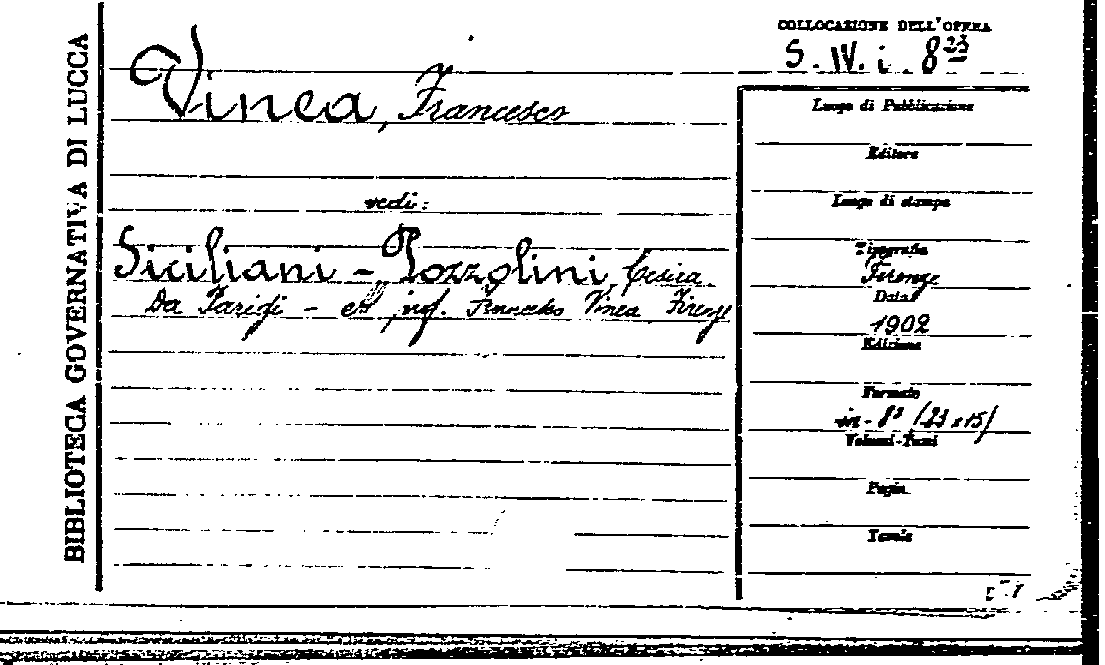 BIBLIOTECA GOVERNATIVA DI LUCCA
COLLOCAZIONE DELL'OPERA
S. IV. i. 8²³
Vinea, Francesco
vedi:
Siciliani - Pozzolini, Cesira
Da Parigi - ed inf. Francesco Vinea Firenze
Luogo di Pubblicazione
Editore
Luogo di stampa
Tipografia
Firenze
Data
1902
Edizione
Formato
in-8° (23x15)
Volumi-Tomi
Pagin.
Tavole